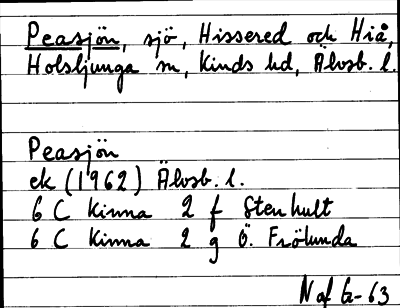 Peasjön, sjö, Hissered och Hiå,
Holsljunga sn, Kinds hd, Älvsb. l.
Peasjön
ek (1962) Älvsb. l.
6 C Kinna 2 f Stenhult
6 C Kinna 2 g Ö. Frölunda
N af G-63